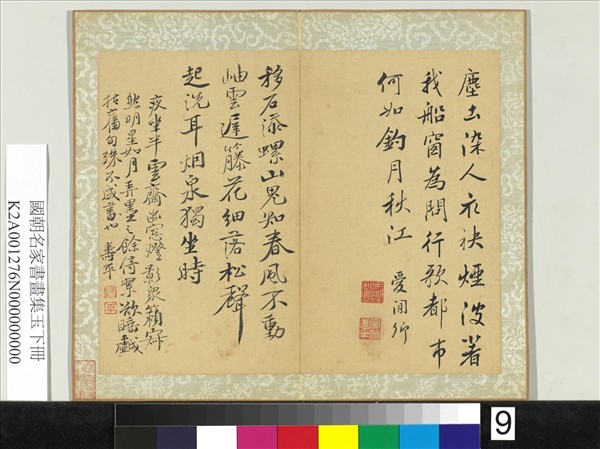 塵土染人衣袂煙波著
我船窗為問行歌都市
何如釣月秋江
愛閒作
移石添螺山鬼知春風不動
岫雲遲籐花細落松聲
起洗耳烟泉獨坐時
夜坐半雲齋幽窗燈影衆籟寂
然明星如月弄墨之餘停筆欲睡戲
拈舊句殊不成書也 壽平
國朝名家書畫集玉下冊
K2A001276N000000000
9